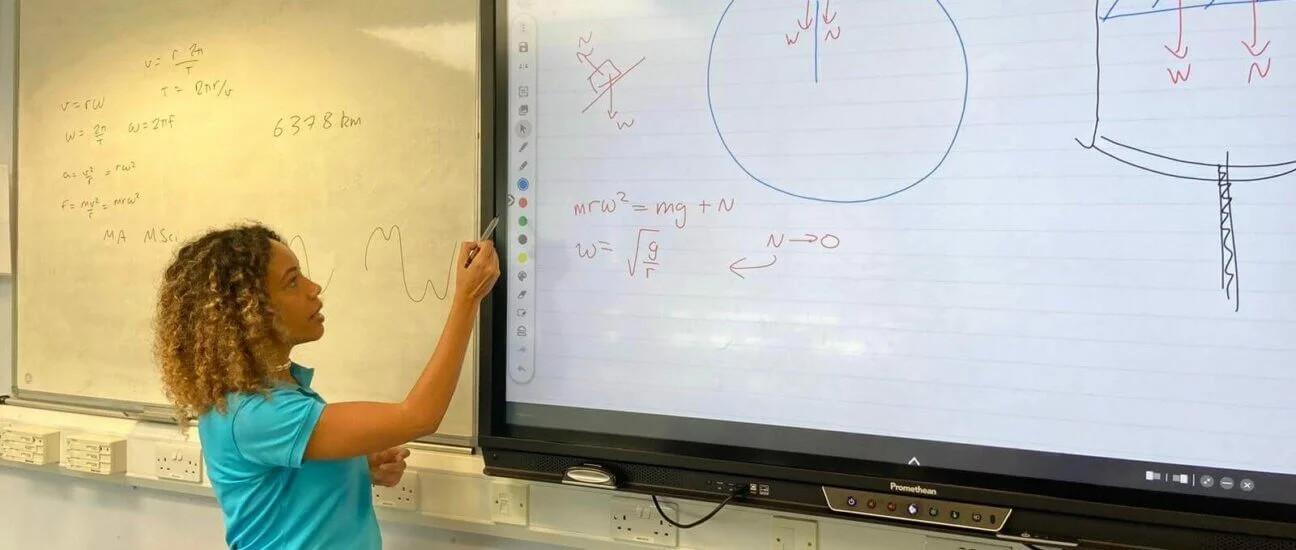 v = r 2π/T
T = 2πr/v
v = rω
ω = 2π/T ω = 2πf
a = v²/r = rω²
F = mv²/r = mrω²
MA MSci
6378 km
N
W
W N
W N
mrω² = mg + N
ω = √g/r
N → 0
Promethean